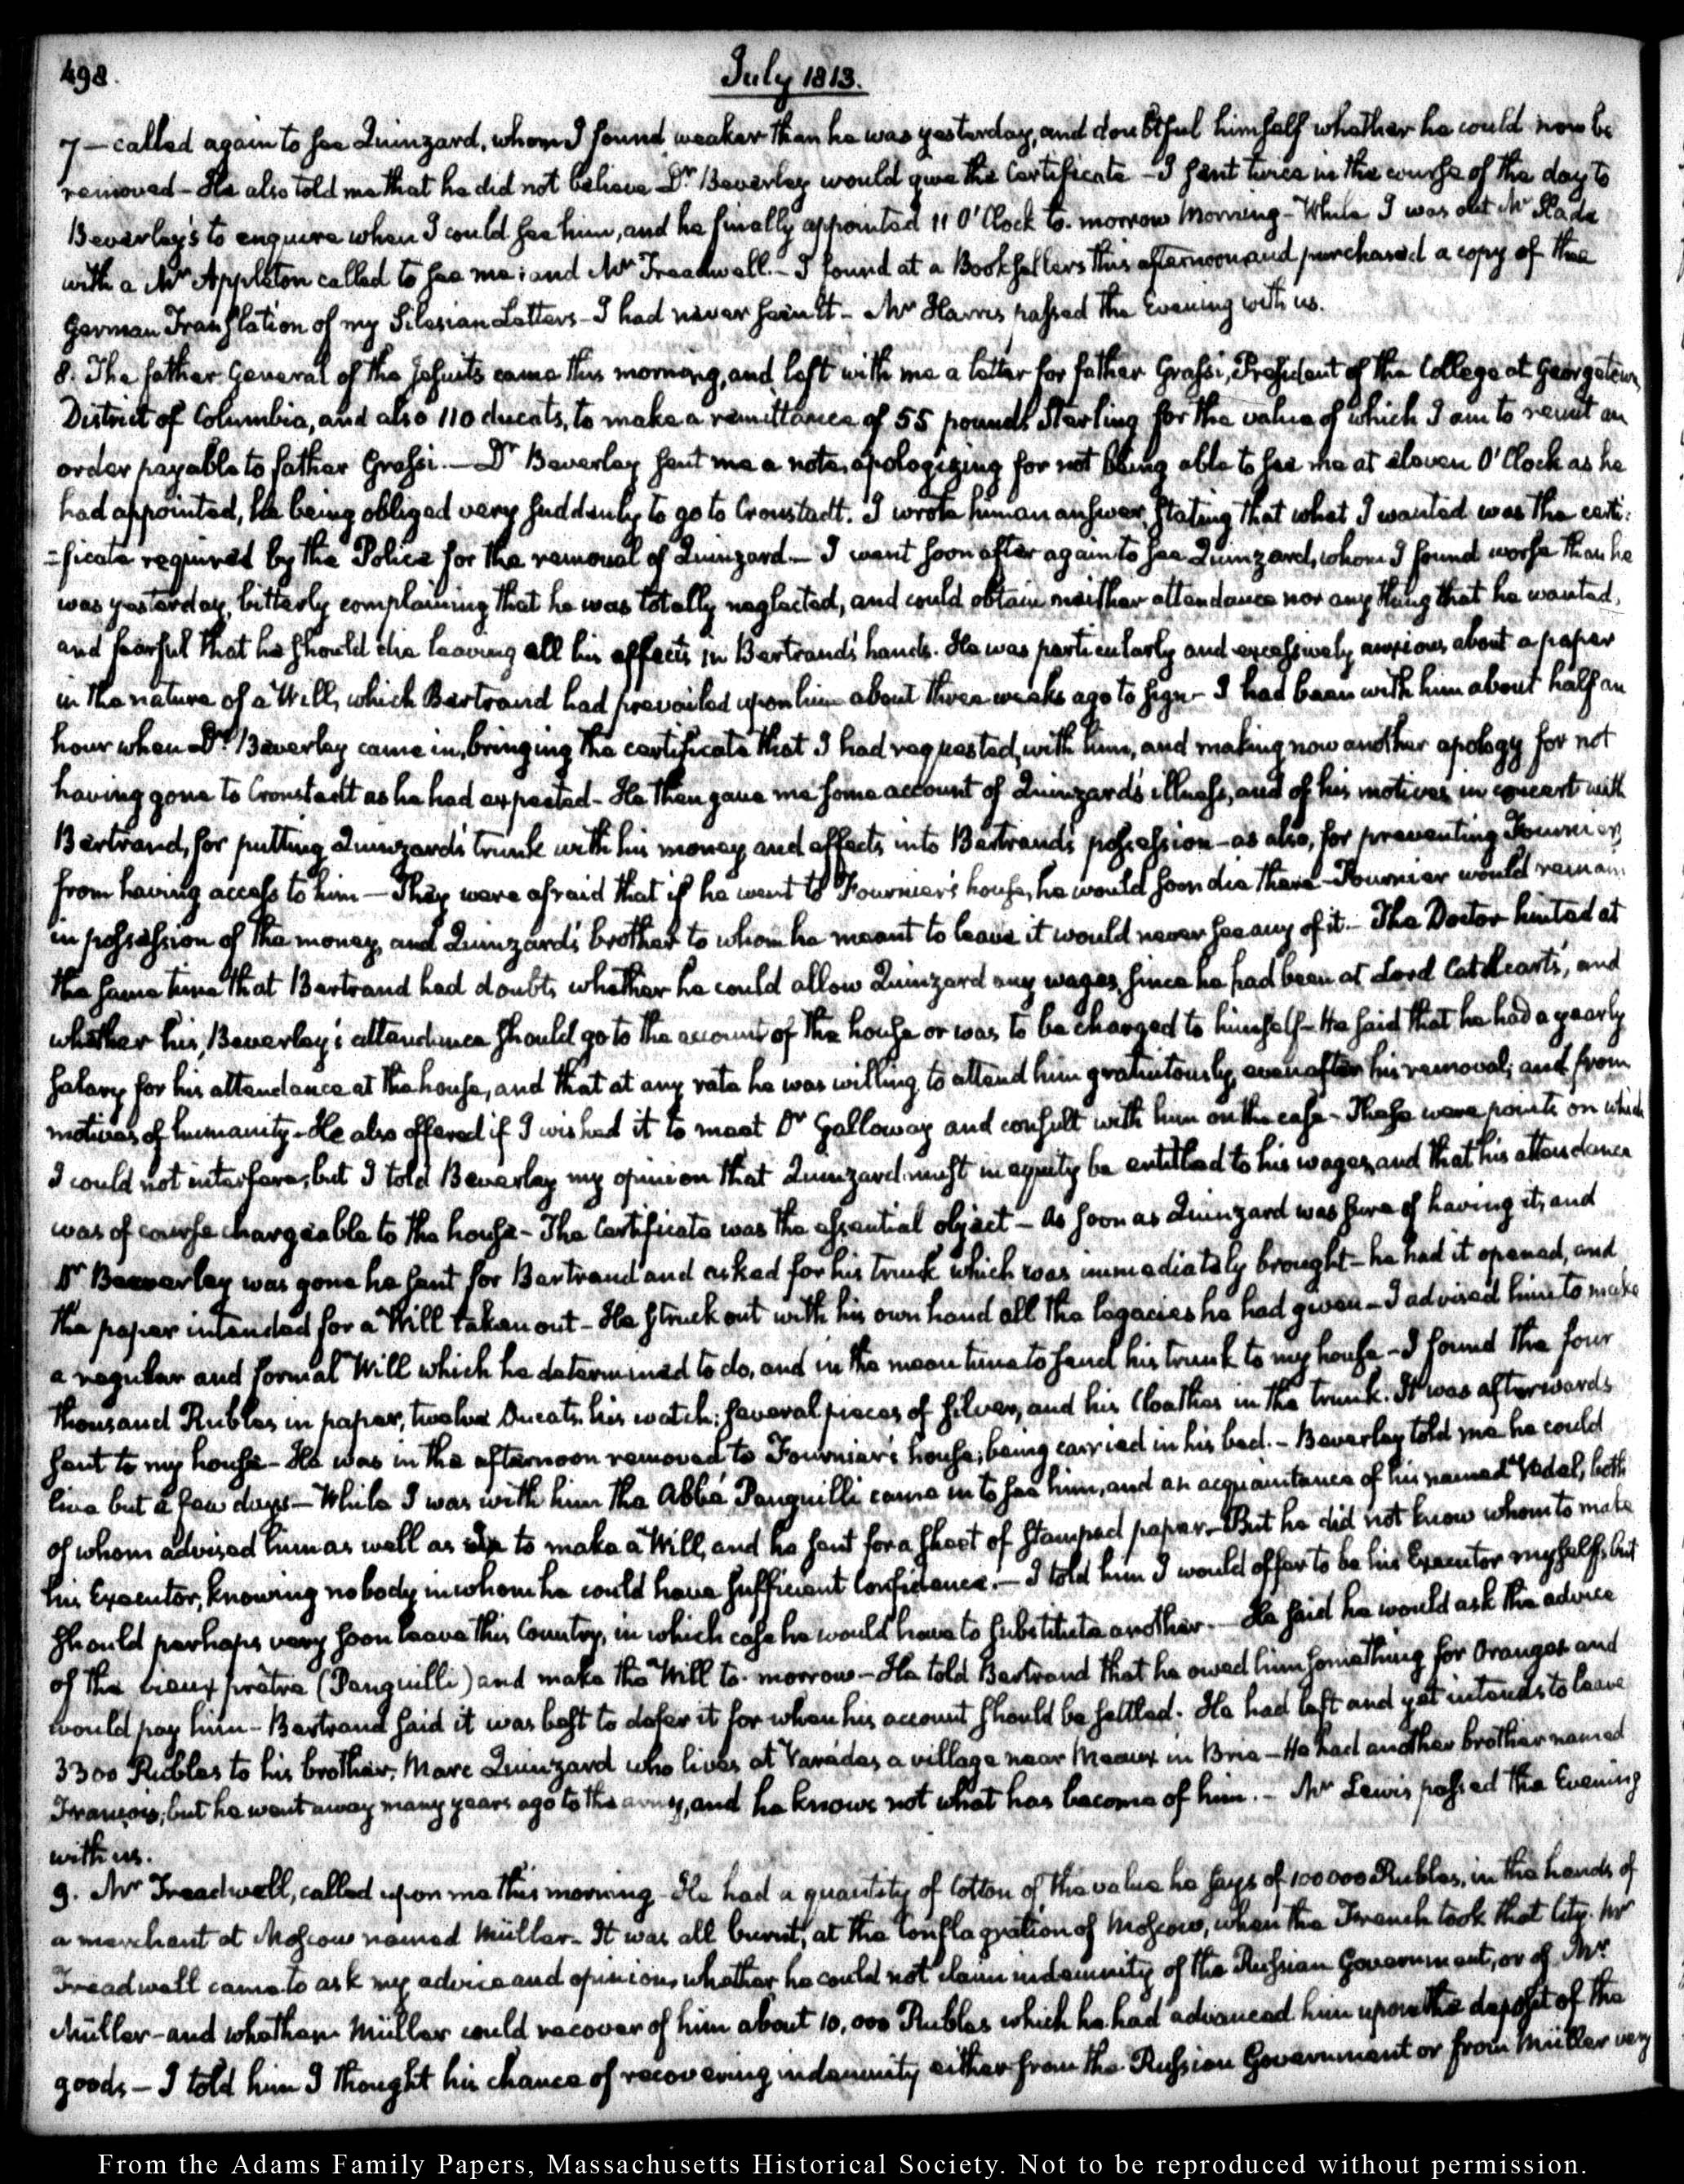 498.
July 1813.
7 — called again to see Quinzard, whom I found weaker than he was yesterday, and doubtful himself whether he could now be
removed — He also told me that he did not believe Dr Beverley would give the Certificate — I sent twice in the course of the day to
Beverley's to enquire when I could see him, and he finally appointed 11 O'Clock to-morrow Morning — While I was out Mr Slade
with a Mr Appleton called to see me: and Mr Treadwell. — I found at a Booksellers this afternoon and purchased a copy of the
German Translation of my Silesian Letters — I had never seen it — Mr Harris passed the Evening with us.
8. The father General of the Jesuits came this morning, and left with me a letter for father Grassi, President of the College at Georgetown,
District of Columbia, and also 110 ducats, to make a remittance of 55 pounds Sterling for the value of which I am to remit an
order payable to father Grassi. — Dr Beverley sent me a note, apologizing for not being able to see me at eleven O'Clock as he
had appointed, he being obliged very suddenly to go to Cronstadt. I wrote him an answer, stating that what I wanted was the certi:
=ficate required by the Police for the removal of Quinzard — I went soon after again to see Quinzard, whom I found worse than he
was yesterday, bitterly complaining that he was totally neglected, and could obtain neither attendance nor any thing that he wanted,
and fearful that he should die leaving all his effects in Bertrand's hands. He was particularly and excessively anxious about a paper
in the nature of a Will, which Bertrand had prevailed upon him about three weeks ago to sign — I had been with him about half an
hour when Dr Beverley came in, bringing the certificate that I had requested, with him, and making now another apology for not
having gone to Cronstadt as he had expected — He then gave me some account of Quinzard's illness, and of his motives in concert with
Bertrand, for putting Quinzard's trunk with his money and effects into Bertrand's possession — as also, for preventing Fournier
from having access to him — They were afraid that if he went to Fournier's house, he would soon die there — Fournier would remain
in possession of the money, and Quinzard's brother to whom he meant to leave it would never see any of it — The Doctor hinted at
the same time that Bertrand had doubts whether he could allow Quinzard any wages, since he had been at Lord Cathcart's, and
whether his, Beverley's attendance should go to the account of the house or was to be charged to himself — He said that he had a yearly
salary for his attendance at the house, and that at any rate he was willing to attend him gratuitously, even after his removal; and from
motives of humanity — He also offered if I wished it to meet Dr Galloway and consult with him on the case — These were points on which
I could not interfere; but I told Beverley my opinion that Quinzard must in equity be entitled to his wages, and that his attendance
was of course chargeable to the house — The Certificate was the essential object — As soon as Quinzard was sure of having it, and
Dr Beverley was gone he sent for Bertrand and asked for his trunk which was immediately brought — he had it opened, and
the paper intended for a Will taken out — He struck out with his own hand all the legacies he had given — I advised him to make
a regular and formal Will which he determined to do, and in the mean time to send his trunk to my house — I found the four
thousand Rubles in paper, twelve Ducats, his watch; several pieces of silver, and his Cloathes in the trunk. It was afterwards
sent to my house — He was in the afternoon removed to Fournier's house; being carried in his bed. — Beverley told me he could
live but a few days — While I was with him the Abbé Panquilli came in to see him, and an acquaintance of his named Vedel, both
of whom advised him as well as to make a Will, and he sent for a sheet of stamped paper — But he did not know whom to make
his Executor, knowing nobody in whom he could have sufficient Confidence. — I told him I would offer to be his Executor myself; but
should perhaps very soon leave this Country, in which case he would have to substitute another. — He said he would ask the advice
of the vieux prêtre (Panquilli) and make the Will to-morrow — He told Bertrand that he owed him something for Oranges and
would pay him — Bertrand said it was best to defer it for when his account should be settled. He had left and yet intends to leave
3300 Rubles to his brother, Marc Quinzard who lives at Varédes a village near Meaux in Brie — He had another brother named
François; but he went away many years ago to the army, and he knows not what has become of him. — Mr Lewis passed the Evening
with us.
9. Mr Treadwell, called upon me this morning — He had a quantity of Cotton of the value he says of 100000 Rubles, in the hands of
a merchant at Moscow named Müller — It was all burnt, at the Conflagration of Moscow, when the French took that City. Mr
Treadwell came to ask my advice and opinion, whether he could not claim indemnity of the Russian Government, or of Mr
Müller — and whether Müller could recover of him about 10,000 Rubles which he had advanced him upon the deposit of the
goods — I told him I thought his chance of recovering indemnity either from the Russian Government or from Müller very
From the Adams Family Papers, Massachusetts Historical Society. Not to be reproduced without permission.